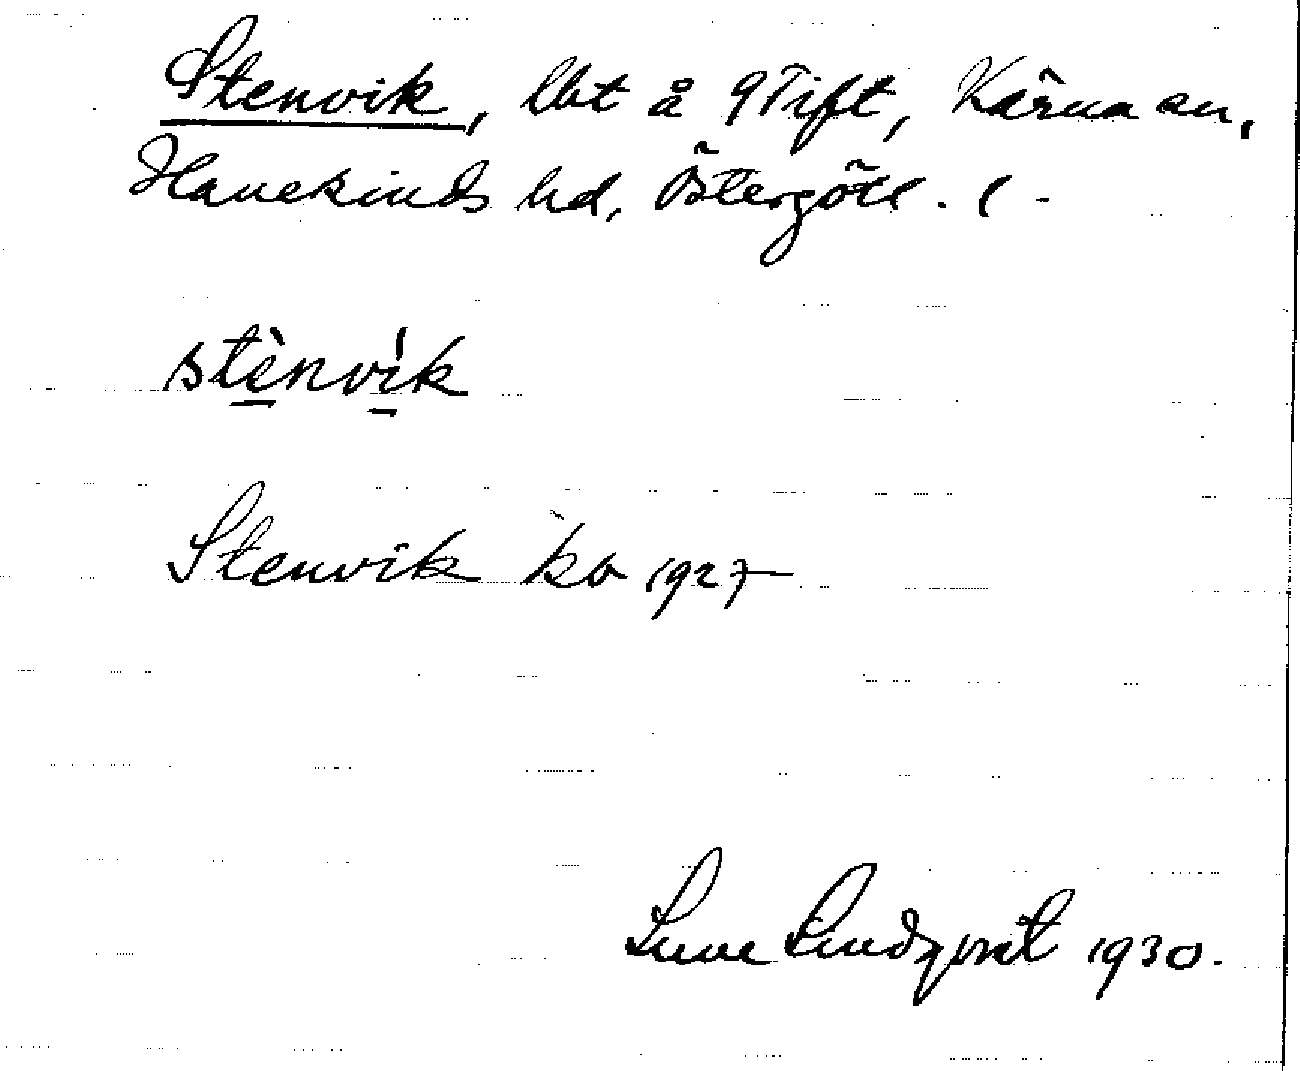 Stenvik, lbt å 9 Tift, Kärna sn,
Hanekinds hd, Östergötl. l -
stènvík
Stenvik kb 1927
Sune Lindqvist 1930.